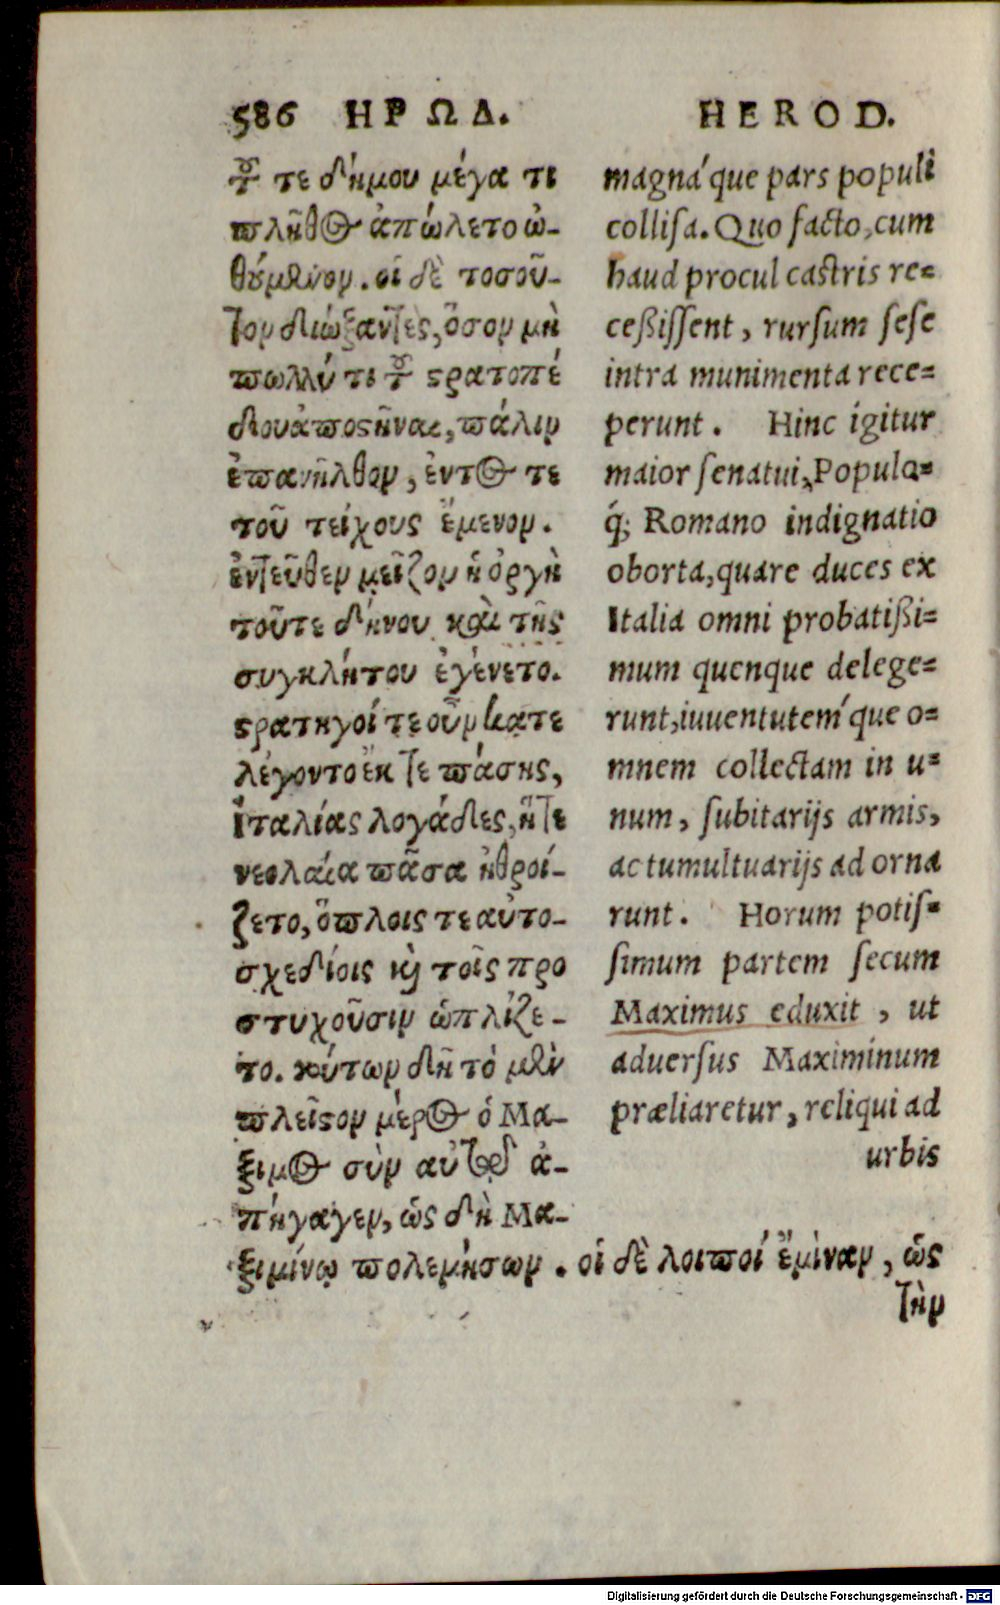 586 ΗΡΩΔ.
τοῦ τε δήμου μέγα τι
πλῆθος ἀπώλετο ὠ-
θούμενον. οἱ δὲ τοσοῦ-
τον διώξαντες, ὅσον μὴ
πολλύ τι τοῦ στρατοπέ
δου ἀποστῆναι, πάλιν
ἐπανῆλθον, ἐντός τε
τοῦ τείχους ἔμενον.
ἐντεῦθεν μεῖζον ἡ ὀργὴ
τοῦτε δήνου καὶ τῆς
συγκλήτου ἐγένετο.
στρατηγοί τε οὖν κατε
λέγοντο ἐκ τε πάσης,
Ἰταλίας λογάδες, ἥ τε
νεολαία πᾶσα ἠθροί-
ζετο, ὅπλοις τε αὐτο-
σχεδίοις καὶ τοῖς προ
στυχοῦσιν ὡπλίζε-
το. τούτων δὴ τὸ μὲν
πλεῖστον μέρος ὁ Μα-
ξιμος σὺν αὐτῷ ἀ-
πήγαγεν, ὡς δὴ Μα-
ξιμίνῳ πολεμήσων. οἱ δὲ λοιποί ἔμιναν, ὡς
τὴν
HEROD.
magná que pars populi
collisa. Quo facto, cum
haud procul castris re=
ceßissent, rursum sese
intra munimenta rece=
perunt. Hinc igitur
maior senatui, Populo=
q́; Romano indignatio
oborta, quare duces ex
Italia omni probatißi=
mum quenque delege=
runt, iuuentutem´que o=
mnem collectam in u=
num, subitarijs armis,
ac tumultuarijs ad orna
runt. Horum potis=
simum partem secum
Maximus eduxit, ut
aduersus Maximinum
præliaretur, reliqui ad
urbis
Digitalisierung gefördert durch die Deutsche Forschungsgemeinschaft - DFG